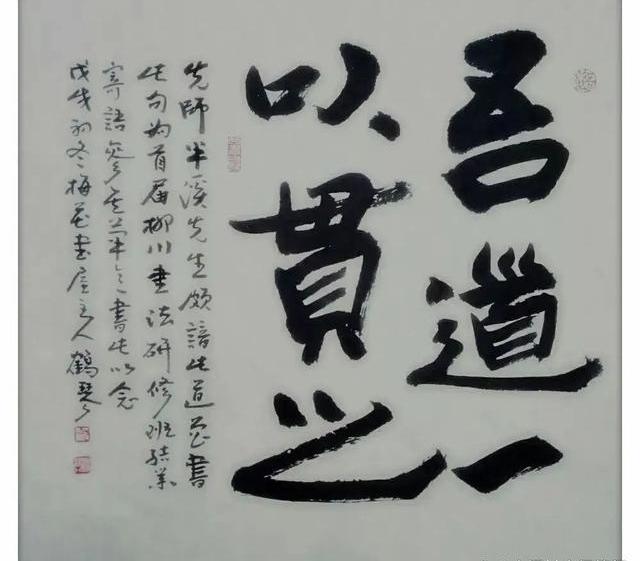 吾道一
以貫之
先師半溪先生頗諳此道曾書
此句為首屆柳川書法研修班結業
寄語 書此以念
戊戌初冬梅花書屋主人鶴琴